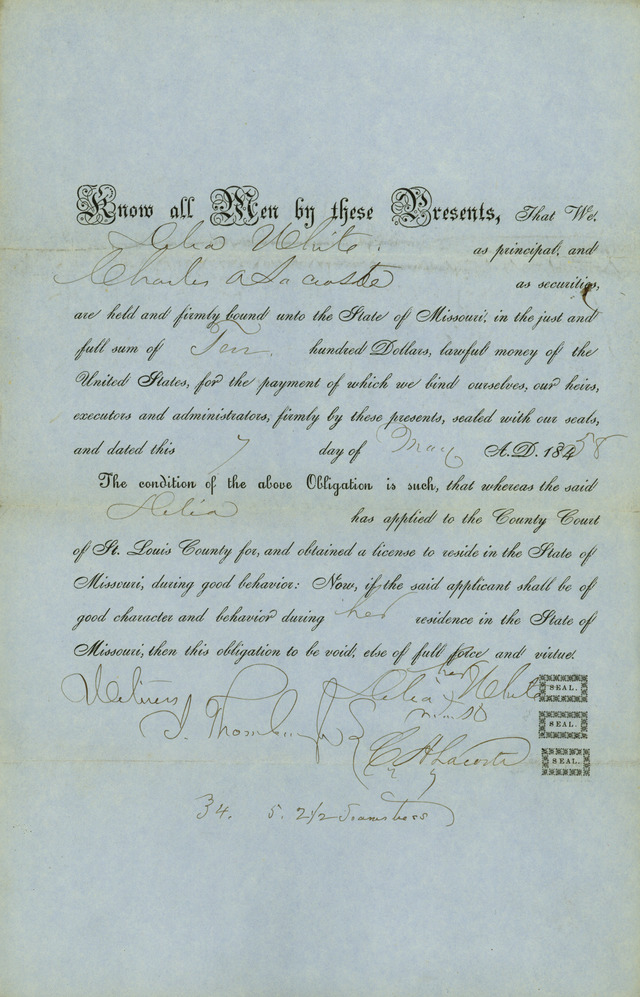 Know all Men by these Presents, That We,
Delia White,
as principal, and
Charles A Lacoste
as securities,
are held and firmly bound unto the State of Missouri, in the just and
full sum of Ten hundred Dollars, lawful money of the
United States, for the payment of which we bind ourselves, our heirs,
executors and administrators, firmly by these presents, sealed with our seals,
and dated this 7 day of May A.D. 1858
The condition of the above Obligation is such, that whereas the said
Delia
has applied to the County Court
of St. Louis County for, and obtained a license to reside in the State of
Missouri, during good behavior: Now, if the said applicant shall be of
good character and behavior during her residence in the State of
Missouri, then this obligation to be void, else of full force and virtue.
her
Witness Delia X White SEAL.
mark
J. Thornburgh SEAL.
C A Lacoste SEAL.
34. 5. 2 1/2 Seamstress